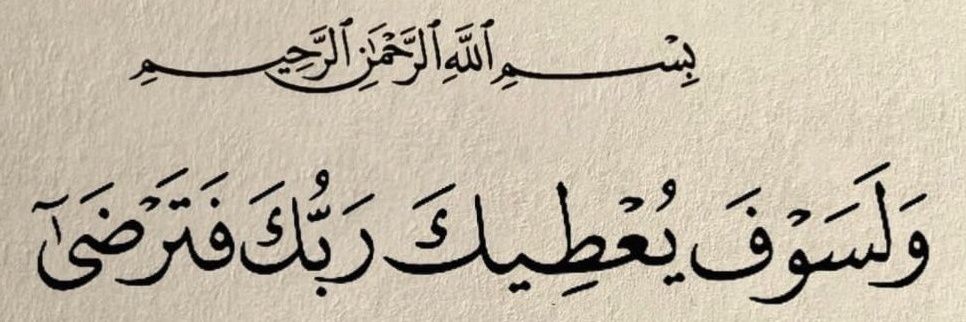 بِسْمِ ٱللَّهِ ٱلرَّحْمَٰنِ ٱلرَّحِيمِ
وَلَسَوْفَ يُعْطِيكَ رَبُّكَ فَتَرْضَىٰٓ